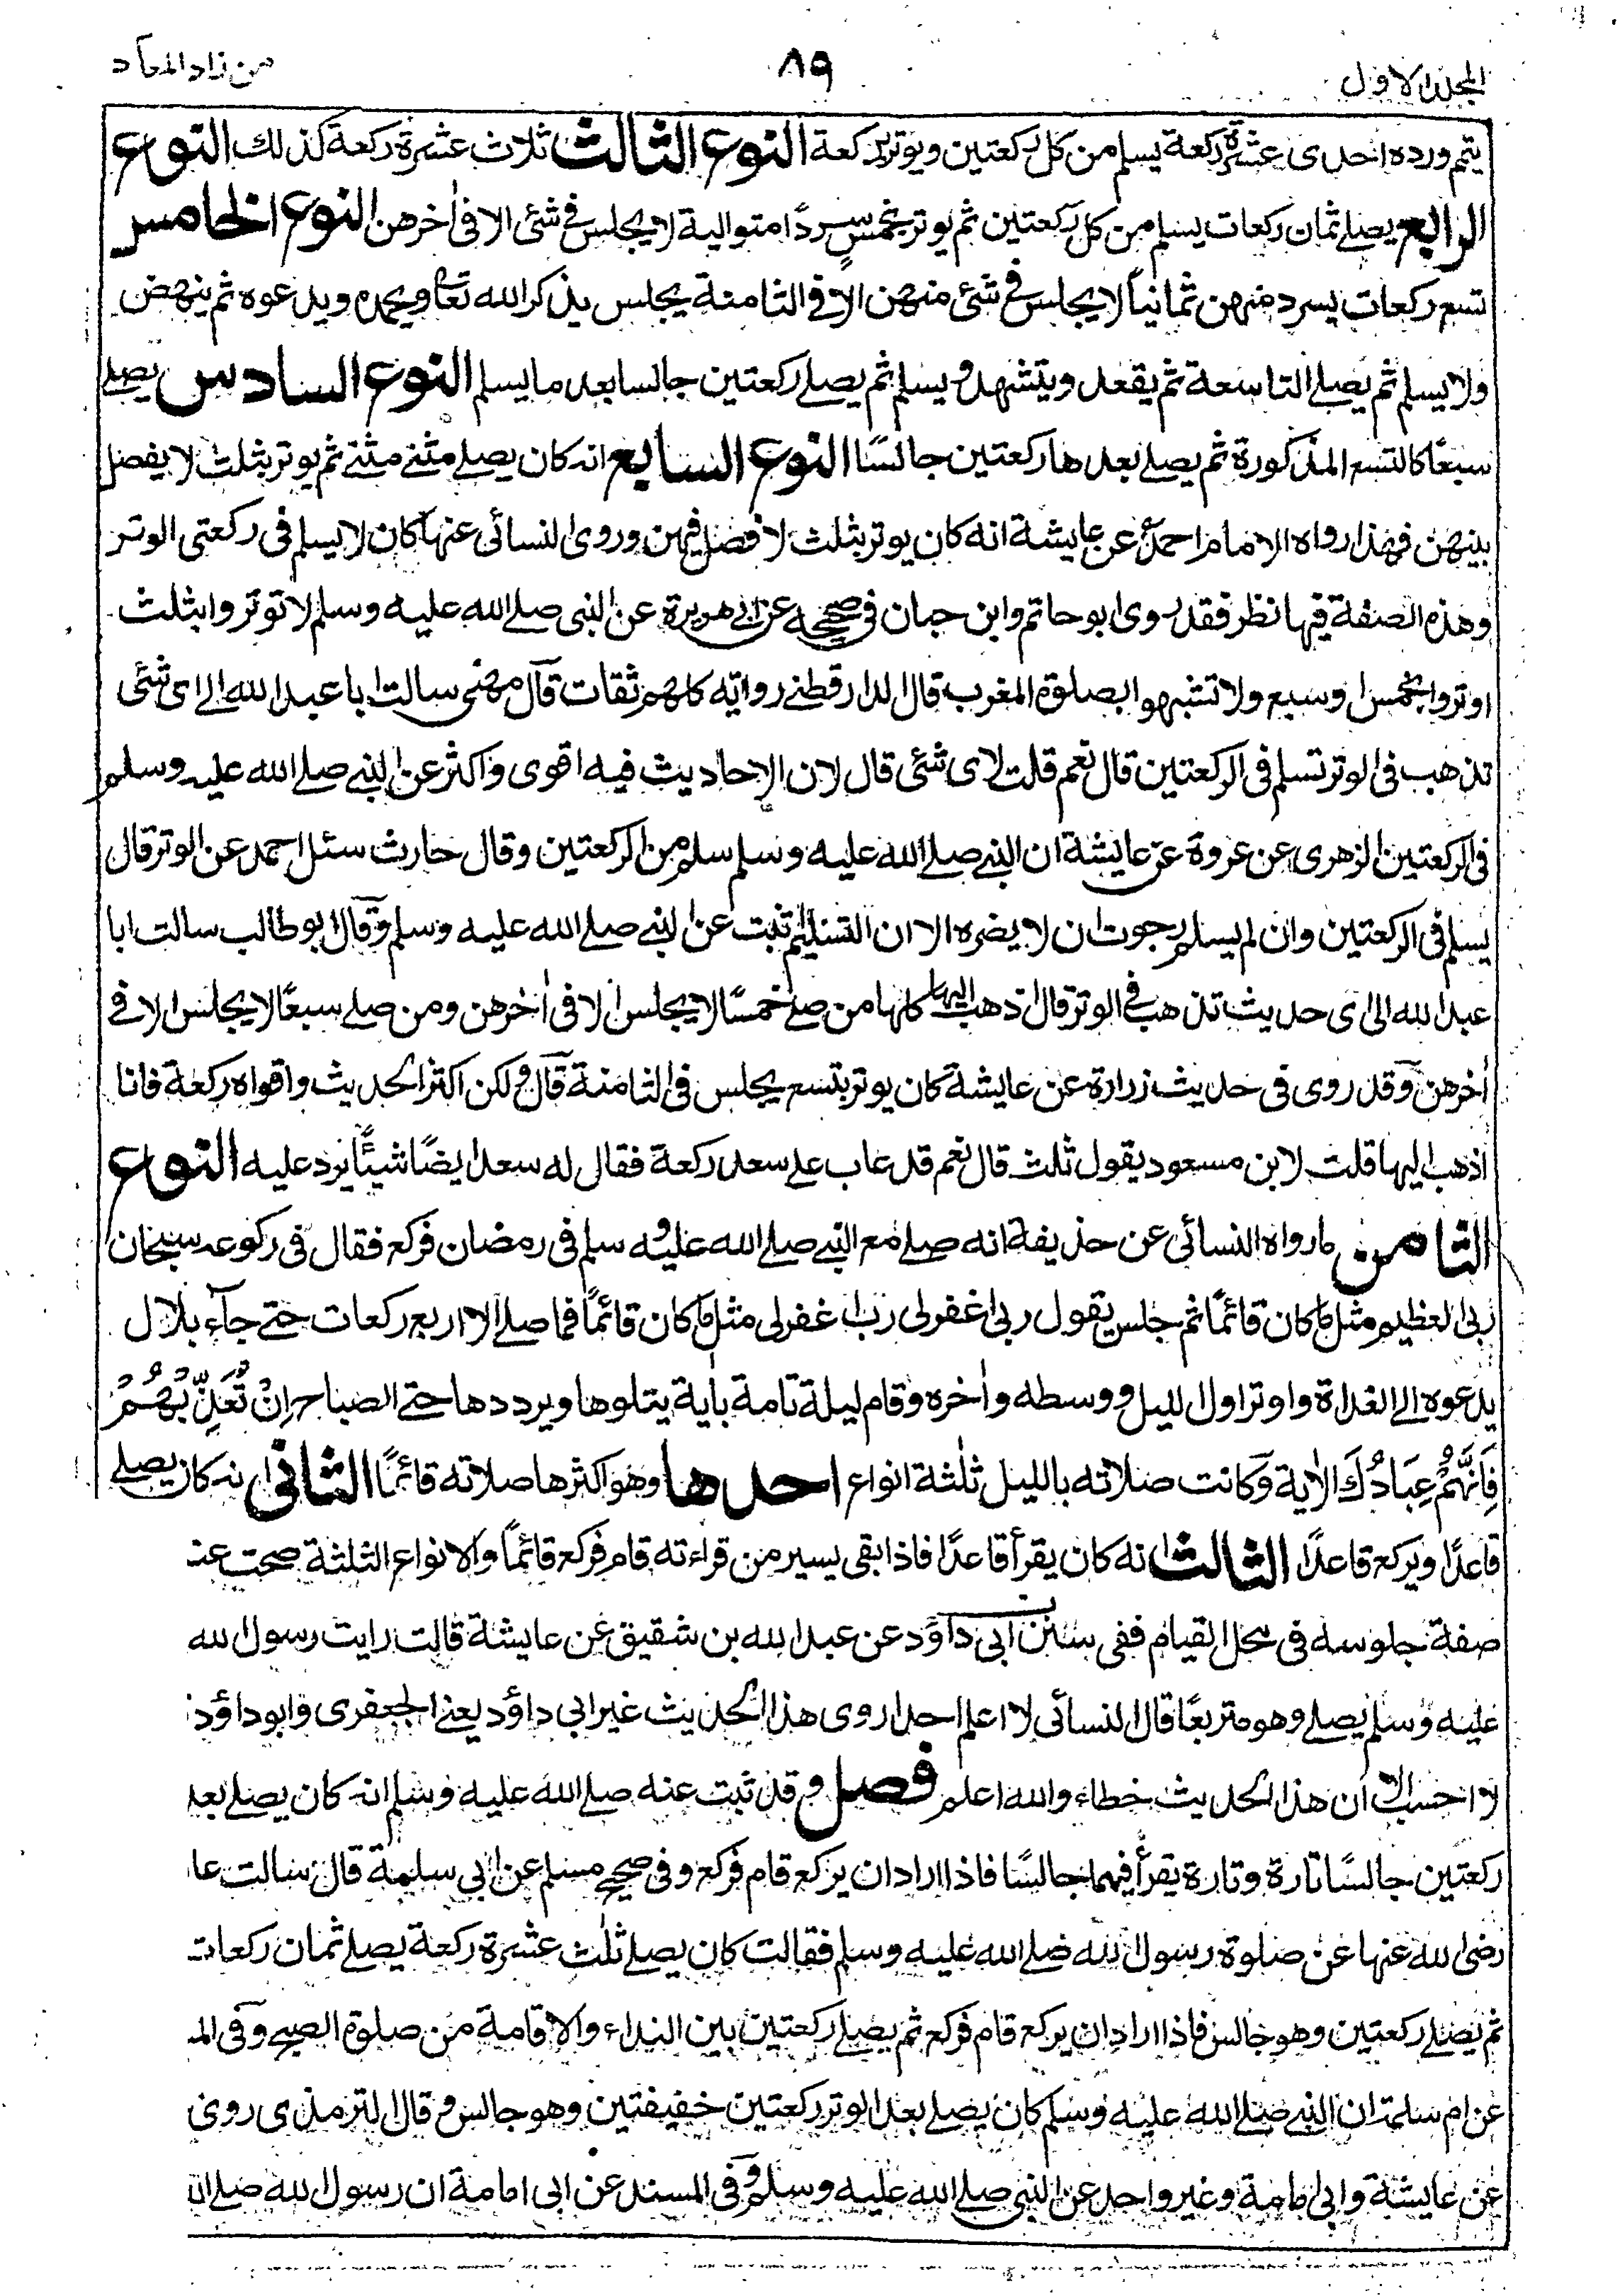 المجلد الاول
٨٩
من زاد المعاد
يتم ورده احدى عشرة ركعة يسلم من كل ركعتين ويوتر بركعة النوع الثالث ثلاث عشرة ركعة كذلك النوع
الرابع يصلے ثمان ركعات يسلم من كل ركعتين ثم يوتر بخمس سردًا متوالية لا يجلس فے شئ الا فى اٰخرهن النوع الخامس
تسع ركعات يسرد منهن ثمانياً لا يجلس فے شئ منهن الا فے الثامنة يجلس يذكر الله تعا ويحمده ويدعوه ثم ينهض
ولا يسلم ثم يصلے التاسعة ثم يقعد ويتشهد ويسلم ثم يصلے ركعتين جالسا بعد ما يسلم النوع السادس يصلے
سبعًا كالتسع المذكورة ثم يصلے بعدها ركعتين جالسًا النوع السابع انه كان يصلے مثنے مثنے ثم يوتر بثلث لا يفصل
بينهن فهذا رواه الامام احمد عن عايشة انه كان يوتر بثلث لا فصل فيهن وروى النسائى عنها كان لا يسلم فى ركعتى الوتر
وهذه الصفة فيها نظر فقد روى ابو حاتم وابن حبان فى صحيحه عن ابى هريرة عن النبى صلے الله عليه وسلم لا توتروا بثلث
اوتروا بخمس او سبع ولا تشبهوا بصلوة المغرب قال الدارقطنے رواته كلهم ثقات قال مهنى سالت ابا عبد الله الے اى شئ
تذهب فى الوتر تسلم فى الركعتين قال نعم قلت لاى شئ قال لان الاحاديث فيه اقوى واكثر عن النبے صلے الله عليه وسلم
فى الركعتين الزهرى عن عروة عن عايشة ان النبے صلے الله عليه وسلم سلم من الركعتين وقال حارث سئل احمد عن الوتر قال
يسلم فى الركعتين وان لم يسلم رجوت ان لا يضره الا ان التسليم ثبت عن النبے صلے الله عليه وسلم وقال ابو طالب سالت ابا
عبد الله الى اى حديث تذهب فے الوتر قال اذهب اليها كلها من صلے خمسًا لا يجلس الا فى اٰخرهن ومن صلے سبعًا لا يجلس الا فے
اٰخرهن وقد روى فى حديث زرارة عن عايشة كان يوتر بتسع يجلس فى الثامنة قال ولكن اكثر الحديث واقواه ركعة فانا
اذهب اليها قلت لابن مسعود يقول ثلث قال نعم قد عاب علے سعد ركعة فقال له سعد ايضًا شيئًا يرد عليه النوع
الثامن ما رواه النسائى عن حذيفة انه صلے مع النبے صلے الله عليه وسلم فى رمضان فركع فقال فى ركوعه سبحان
ربى العظيم مثل ما كان قائمًا ثم جلس يقول رب اغفر لى رب اغفر لى مثل ما كان قائمًا فما صلے الا اربع ركعات حتے جاء بلال
يدعوه الے الغداة واوتر اول الليل ووسطه واٰخره وقام ليلة تامة باٰية يتلوها ويرددها حتے الصباح اِنْ تُعَذِّبْهُمْ
فَاِنَّهُمْ عِبَادُكَ الاٰية وكانت صلاته بالليل ثلٰثة انواع احدها وهو اكثرها صلاته قائمًا الثانى انه كان يصلے
قاعدًا ويركع قاعدًا الثالث انه كان يقرأ قاعدًا فاذا بقى يسير من قراءته قام فركع قائمًا والانواع الثلثة صحت عنه
صفة جلوسه فى محل القيام ففى سنن ابى داؤد عن عبد الله بن شقيق عن عايشة قالت رايت رسول الله
عليه وسلم يصلے وهو متربعًا قال النسائى لا اعلم احدا روى هذا الحديث غير ابى داؤد يعنے الجعفرى وابو داؤد
لا احسب الا ان هذا الحديث خطاء والله اعلم فصل وقد ثبت عنه صلے الله عليه وسلم انه كان يصلے بعد
ركعتين جالسًا تارة وتارة يقرأ فيهما جالسًا فاذا اراد ان يركع قام فركع وفى صحيح مسلم عن ابى سلمة قال سالت عا
رضى الله عنها عن صلوة رسول الله صلے الله عليه وسلم فقالت كان يصلے ثلٰث عشرة ركعة يصلے ثمان ركعات
ثم يصلے ركعتين وهو جالس فاذا اراد ان يركع قام فركع ثم يصلے ركعتين بين النداء والاقامة من صلوة الصبح وفى الم
عن ام سلمة ان النبے صلے الله عليه وسلم كان يصلے بعد الوتر ركعتين خفيفتين وهو جالس وقال الترمذى روى
عن عايشة وابى امامة وغير واحد عن النبى صلے الله عليه وسلم وفى المسند عن ابى امامة ان رسول الله صلے ال